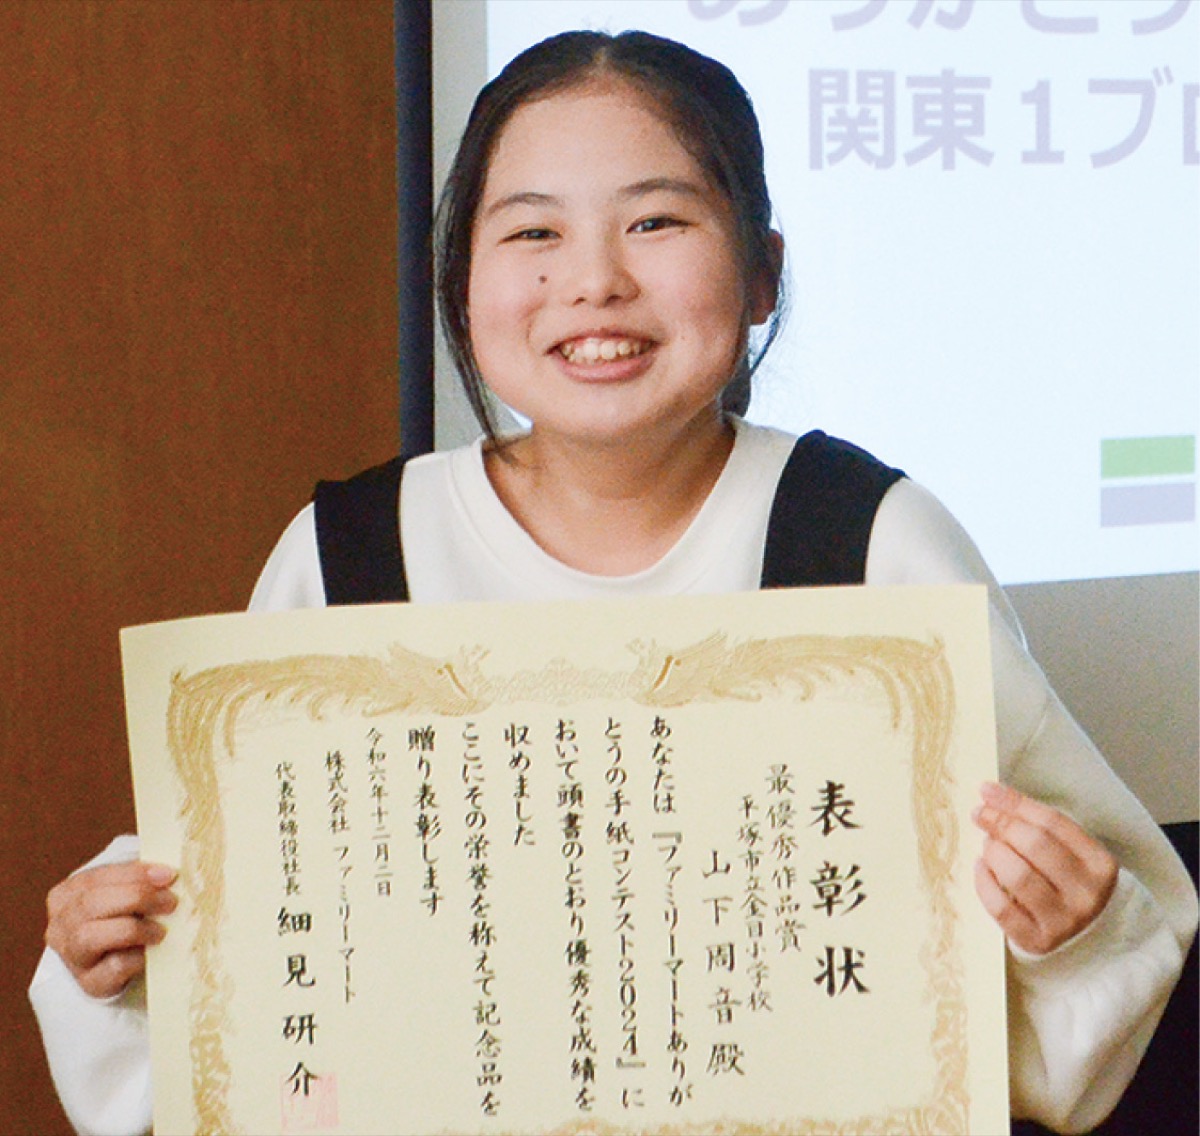 ありがとう
関東1ブロ
表彰状
最優秀作品賞
平塚市立金目小学校
山下周音殿
あなたは『ファミリーマートありが
とうの手紙コンテスト2024』に
おいて頭書のとおり優秀な成績を
収めました
ここにその栄誉を称えて記念品を
贈り表彰します
令和六年十二月二日
株式会社 ファミリーマート
代表取締役社長 細見研介